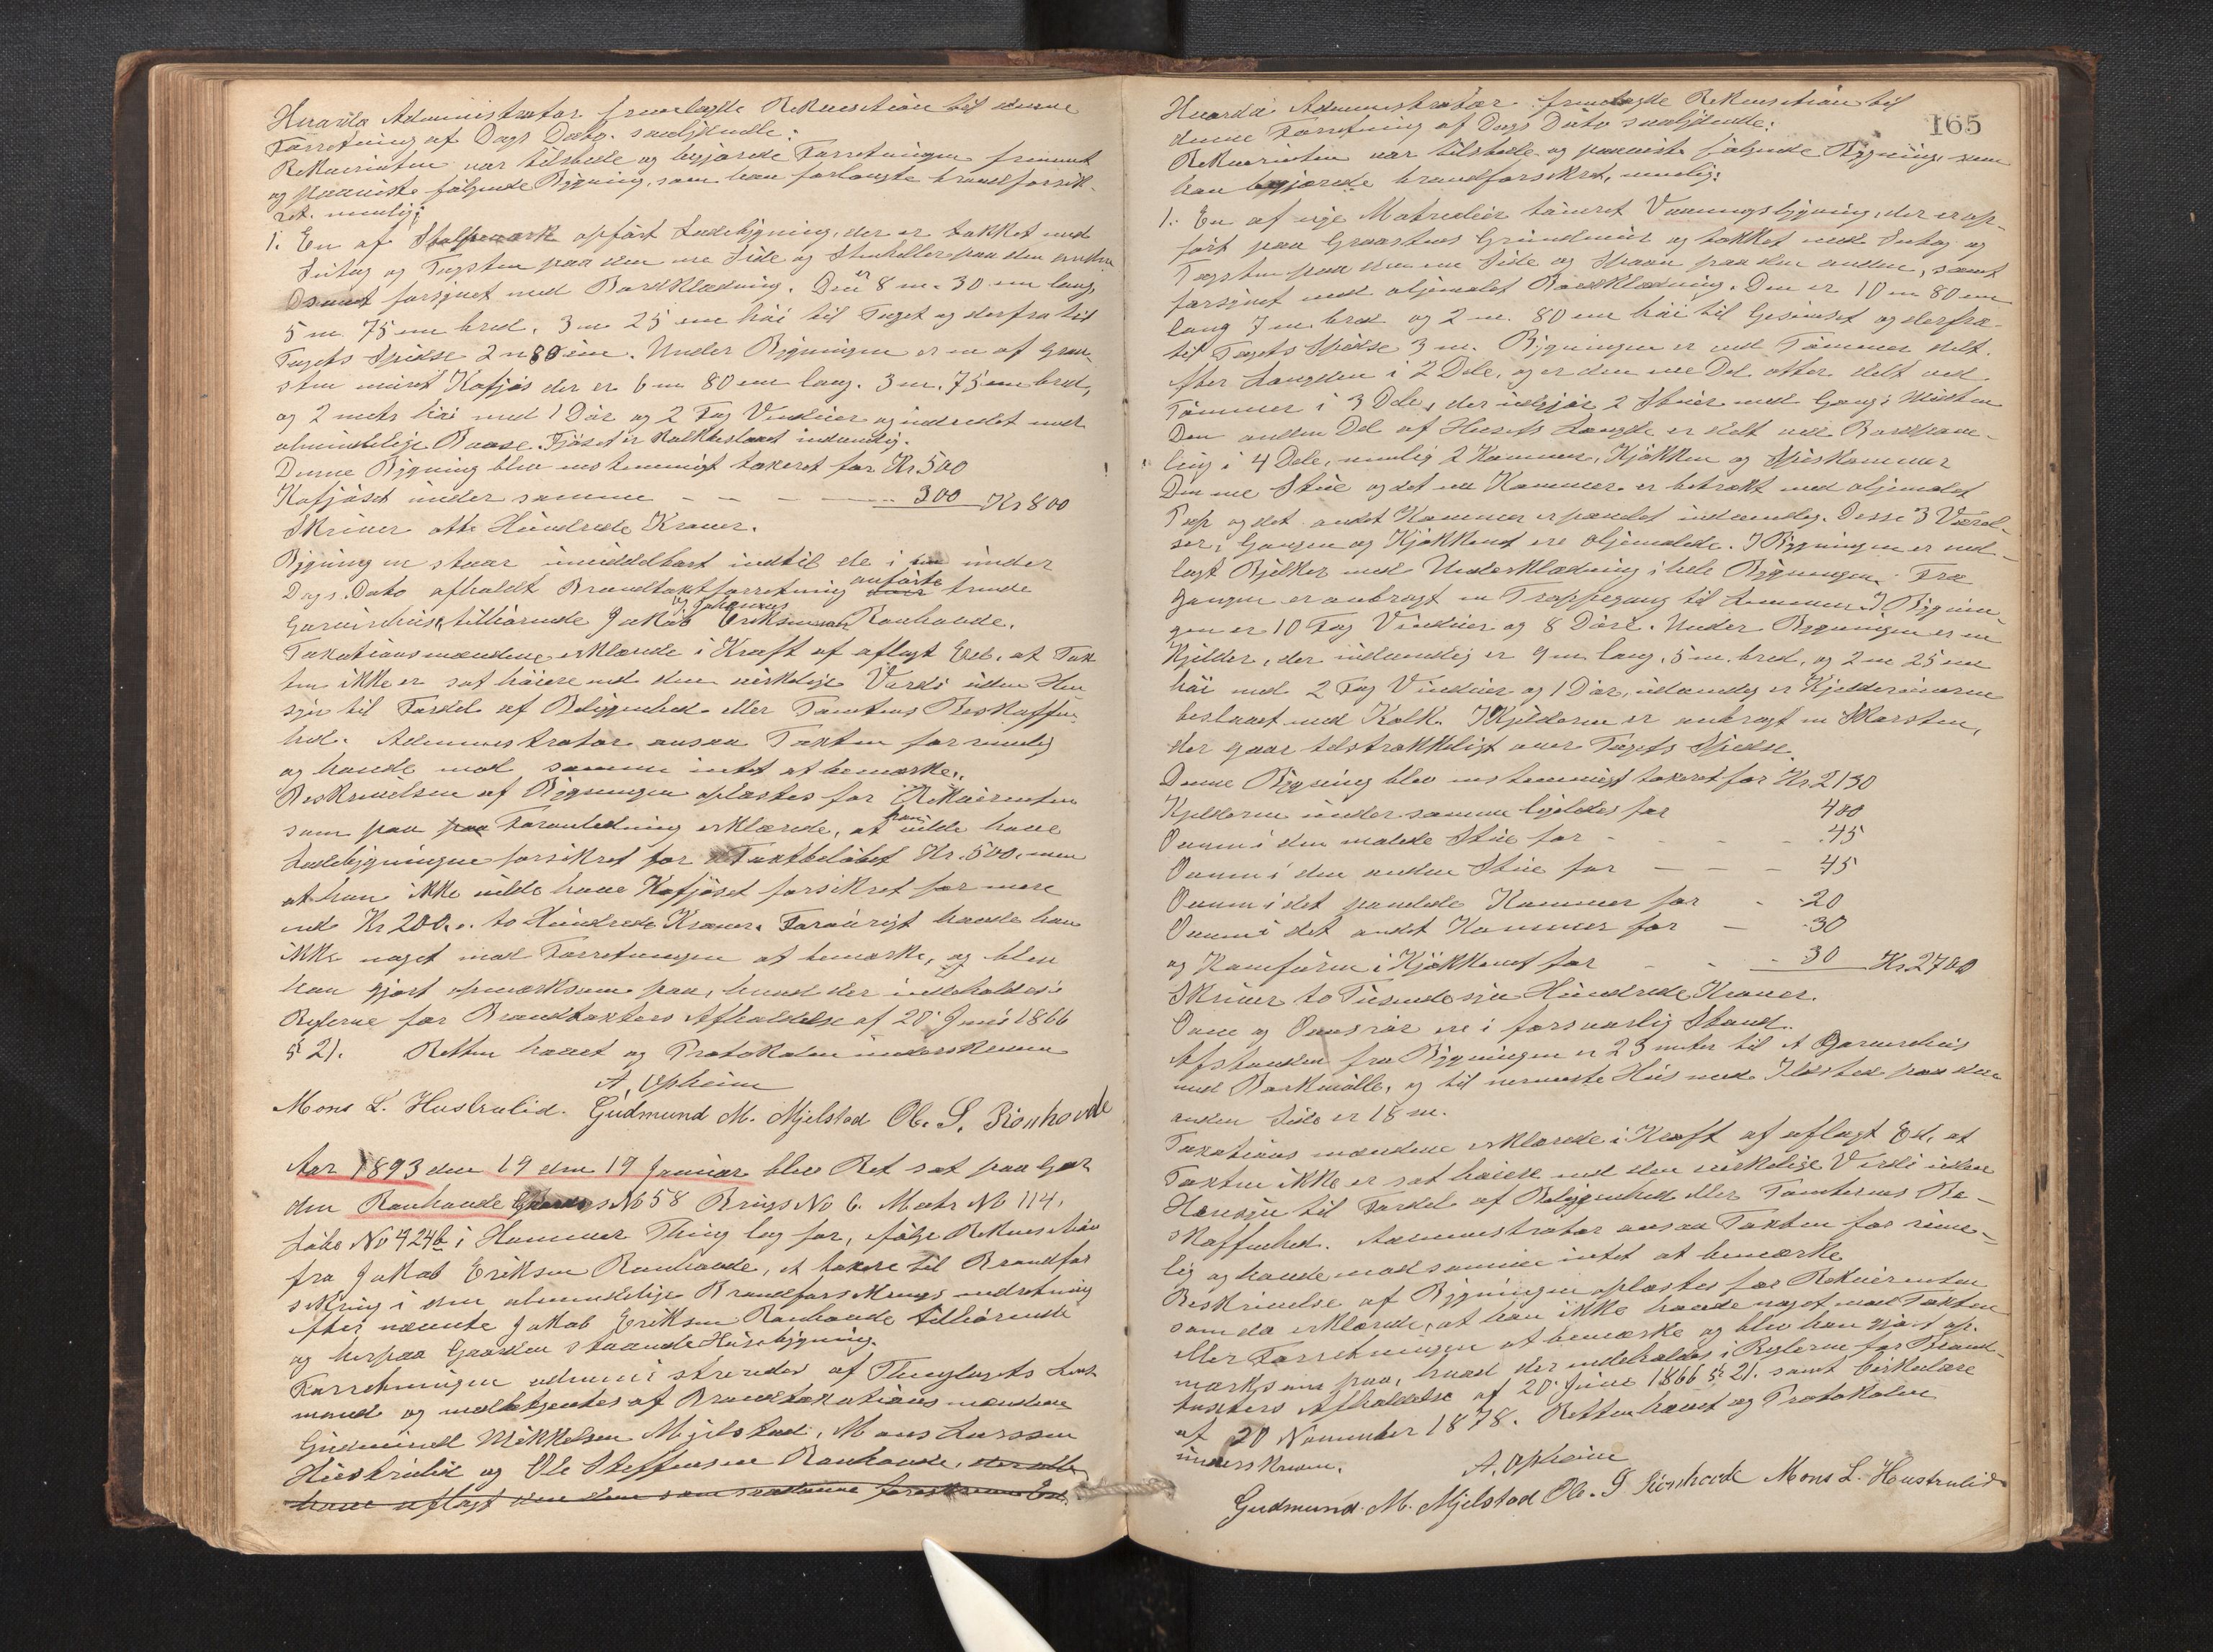 Hvorda Administrator fremlagde Rekvisition til denne
Forretning af Dags Dato saalydende:
Rekvirenten var tilstede og begjærede Forretningen fremmet
og paaviste følgende Bygning, som han forlangte brandforsik-
ret. nemlig:
1. En af Stolpeværk opført Ladebygning, der er tækket med
Sutag og Tagsten paa den ene Side og Stenheller paa den anden
samt forsynet med Bordklædning. Den er 8 m. 30 cm lang,
5 m 75 cm bred. 3 m 25 cm høi til Taget og derfra til
Tagets Spidse 2 m 80 cm. Under Bygningen er en af Graa-
sten muret Kofjøs der er 6 m 80 cm lang. 3 m. 75 cm bred,
og 2 meter høi med 1 Dør og 2 Fag Vinduer og indredet med
almindelige Baase. Fjøset er kalkbeslaaet indvendig.
Denne Bygning blev enstemmigt taxeret for Kr. 500
Kofjøset under samme - - - 300 Kr 800
Skriver otte Hundrede Kroner.
Bygningen staar umiddelbart indtil de i under
Dags Dato afholdt Brandtaxtforretning anførte tvende
Garverhuse, tilhørende Jakob og Johannes Eriksen Rønhovde.
Taxationsmændene erklærede i Kraft af aflagt Ed, at Tax
ten ikke er sat høiere end den virkelige Værdi uden Hen
syn til Fordel af Beliggenhed eller Tomtens Beskaffen
hed. Administrator ansaa Taxten for rimelig
og havde mod samme intet at bemærke.
Beskrivelsen af Bygningen oplæstes for Rekvirenten
som paa Foranledning erklærede, at han vilde have
Ladebygningen forsikret for Taxtbeløbet Kr. 500. men
at han ikke vilde have Kofjøset forsikret for mere
end Kr 200. to Hundrede Kroner. Forøvrigt havde han
ikke noget mod Forretningen at bemærke, og blev
han gjort opmærksom paa, hvad der indeholdes i
Reglerne for Brandtaxters Afholdelse af 20 Juni 1866
§ 21. Retten hævet og Protokolen underskreven
A. Opheim
Mons L. Hustvedid. Gudmund M. Mjelstad Ole. S. Rionhovde
Aar 1893 den 19 den 19 Januar blev Ret sat paa Gaar
den Rønhovde Gaards No 58 Brugs No 6. Matr No 114.
Løbe No 424b i Hammer Thinglag for, ifølge Rekvisition
fra Jakob Eriksen Rønhovde, at taxere til Brandfor
sikring i den almindelige Brandforsikrings indretning
efter nævnte Jakob Eriksen Rønhovde tilhørende
og herpaa Gaarden staaende Husebygning.
Forretningen administreredes af Thinglagets Lens
mand og medbetjentes af Brandtaxationsmændene
Gudmund Mikkelsen Mjelstad, Mons Larssen
Hustvedid og Ole Steffensen Rønhovde, der alle
have aflagt den dem som saadanne foreskrevne Ed.
165
Hvorda Administrator fremlagde Rekvisition til
denne Forretning af Dags Dato saalydende:
Rekvirenten var tilstede og paaviste følgende Bygning som
han begjærede brandforsikret, nemlig:
1. En af nye Materialier tømret Vaaningsbygning, der er op-
ført paa Graastens Grundmur og tækket med Sutag og
Tagsten paa den ene Side og Spaan paa den anden, samt
forsynet med oljemalet Bordklædning. Den er 10 m 80 cm
lang 7 m. bred og 2 m. 80 cm høi til Gesimset og derfra
til Tagets Spidse 3 m. Bygningen er ved Tømmer delt
efter Længden i 2 Dele, og er den ene Del atter delt ved
Tømmer i 3 Dele, der udgjør 2 Stuer med Gang i Midten
Den anden Del af Husets Længde er delt ved Bordpane-
ling i 4 Dele, nemlig 2 Kammer, Kjøkken og Spiskammer
Den ene Stue og det ene Kammer er betrukket med oljemalet
Pap og det andet Kammer er panelet indvendig. Disse 3 Værel-
ser, Gangen og Kjøkkenet ere oljemalede. I Bygningen er ned-
lagt Bjelker med Underklædning i hele Bygningen. Fra
Gangen er anbragt en Trappegang til Lemmen. I Bygnin-
gen er 10 Fag Vinduer og 8 Døre. Under Bygningen er en
Kjelder, der indvendig er 9 m lang, 5 m. bred, og 2 m 25 cm
høi med 2 Fag Vinduer og 1 Dør, udvendig er Kjeldermuren
beslaaet med Kalk. I Kjelderen er anbragt en Skorsten,
der gaar tilstrækkeligt over Tagets Spidse.
Denne Bygning blev enstemmigt taxeret for Kr. 2130
Kjelderen under samme ligeledes for 400
Ovnen i den malede Stue for - - - 45
Ovnen i den anden Stue for - - - 45
Ovnen i det panelede Kammer for - 20
Ovnen i det andet Kammer for - 30
og Komfuren i Kjøkkenet for - - - 30 Kr. 2700
Skriver to Tusende syv Hundrede Kroner.
Ovne og Ovnsrør ere i forsvarlig Stand.
Afstanden fra Bygningen er 23 meter til et Garverhus
med Barkmølle, og til nermeste Hus med Ildsted paa den
anden Side er 18 m.
Taxationsmændene erklærede i Kraft af aflagt Ed, at
Taxten ikke er sat høiere end den virkelige Værdi uden
Hensyn til Fordel af Beliggenhed eller Tomternes Be-
skaffenhed. Administrator ansaa Taxten for rime-
lig og havde mod samme intet at bemærke
Beskrivelse af Bygningen oplæstes for Rekvirenten
som da erklærede, at han ikke havde noget mod Taxten
eller Forretningen at bemærke og blev han gjort op-
mærksom paa, hvad der indeholdes i Reglerne for Brand-
taxters Afholdelse af 20 Juni 1866 § 21. samt Cirkulære
af 20 November 1878. Retten hævet og Protokolen
underskreven.
A. Opheim
Gudmund. M. Mjelstad Ole. S. Rionhovde Mons L. Hustvedid